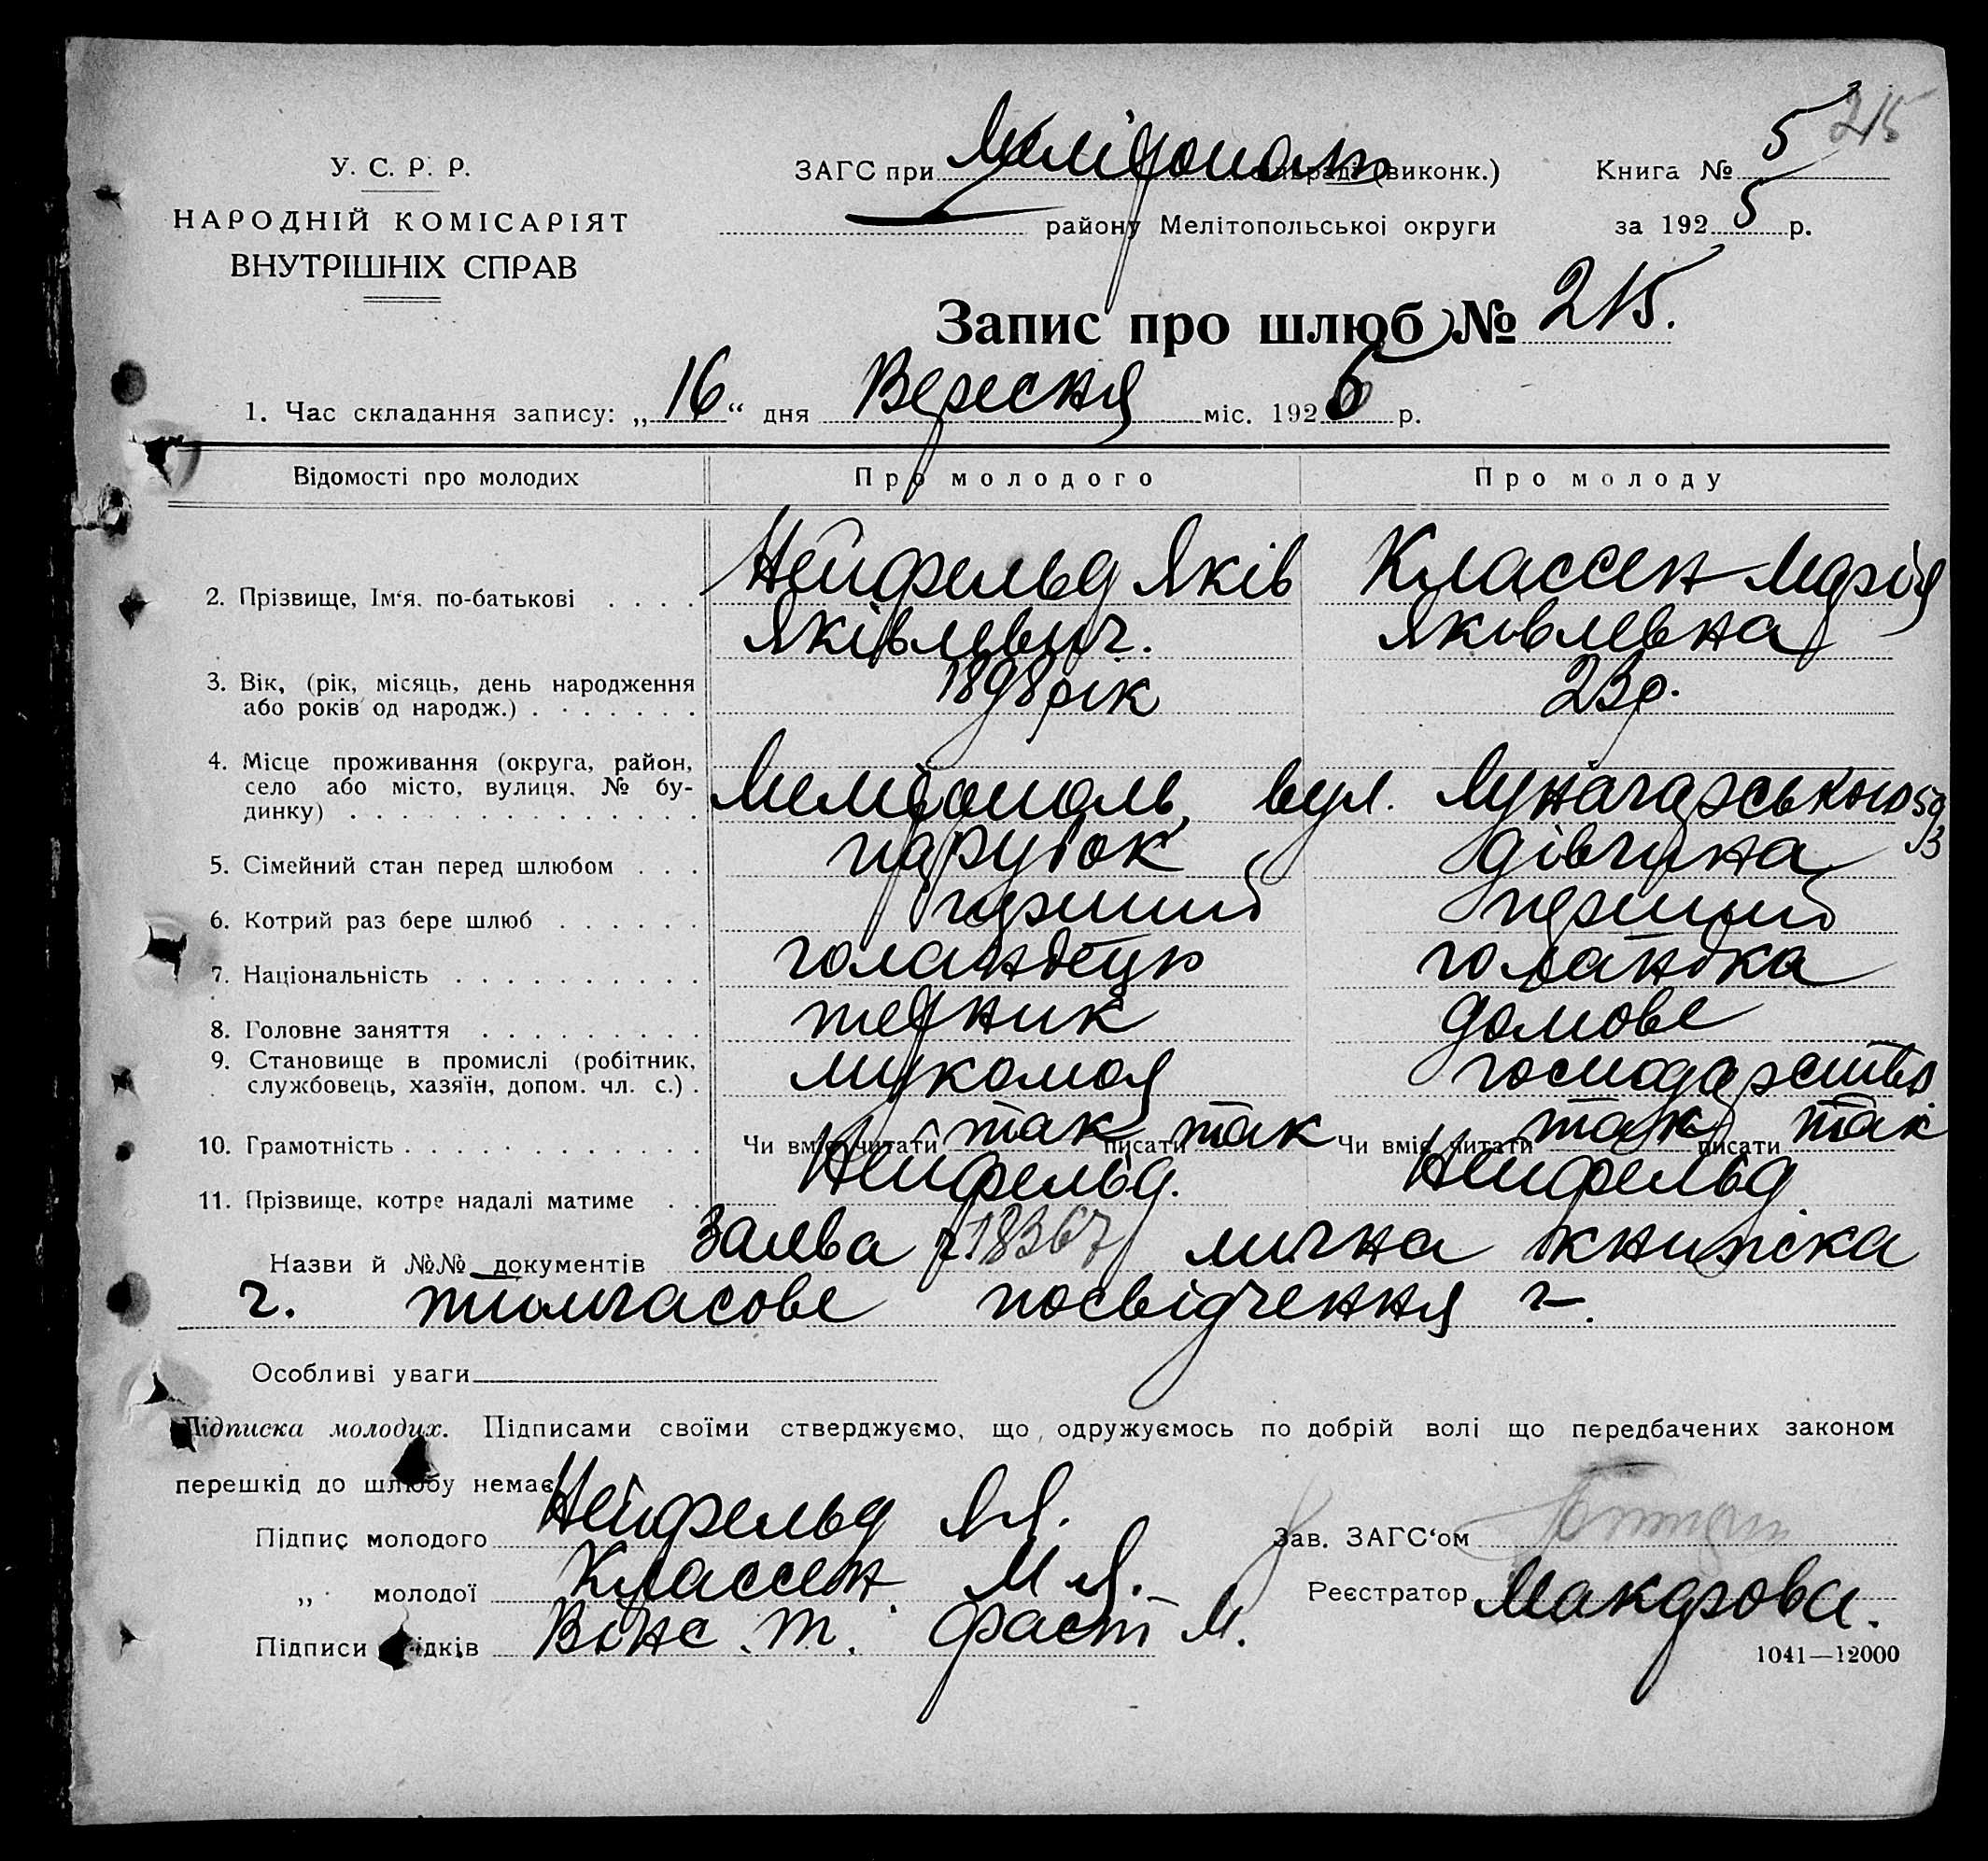 215
У. С. Р. Р.
НАРОДНІЙ КОМІСАРІЯТ
ВНУТРІШНІХ СПРАВ
ЗАГС при Мелітополь (виконк.)
району Мелітопольськоі округи
Книга № 5
за 1925 р.
Запис про шлюб № 215.
1. Час складання запису: „16“ дня Вересня міс. 1925 р.
Відомості про молодих Про молодого Про молоду
2. Прізвище, Ім‘я, по-батькові . . . . Нейфельд Яків Классен Марія
Яківлевич. Яківлевна
3. Вік, (рік, місяць, день народження 1898 рік 23 р.
або років од народж.) . . . . . . .
4. Місце проживання (округа, район,
село або місто, вулиця, № бу- Мелітополь, вул. Луначарського 59/3
динку) . . . . . . . . . . . . . . .
5. Сімейний стан перед шлюбом . . . парубок дівчина
6. Котрий раз бере шлюб . . . . . . перший перший
7. Національність . . . . . . . . . . голандець голандка
8. Головне заняття . . . . . . . . . технік домове
9. Становище в промислі (робітник, мукомол господарство
службовець, хазяїн, допом. чл. с.) .
10. Грамотність . . . . . . . . . . . . Чи вміє читати так писати так Чи вміє читати так писати так
11. Прізвище, котре надалі матиме . . Нейфельд. Нейфельд
Назви й №№ документів Заява 18367 лична книжка
ч. тимчасове посвідчення ч.
Особливі уваги
Підписка молодих. Підписами своїми стверджуємо, що одружуємось по добрій волі що передбачених законом
перешкід до шлюбу немає
Підпис молодого Нейфельд Я.Я.
Зав. ЗАГС‘ом
„ молодої Классен М.Я.
Реєстратор Макарова.
Підписи свідків Т. Фаст М.
1041—12000